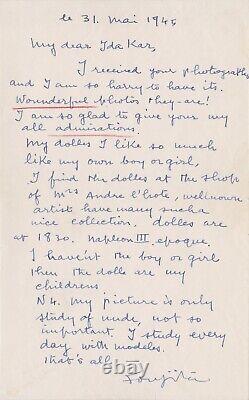 le 31. Mai 1945
My dear Ida Kar,
I received your photographs
and I am so harry to have its.
Wounderful photos they-are!
I am so glad to give you my
all admirations.
My dolles I like so much
like my own boy or girl,
I find the dolles at the shop
of Mrs Andre l'hote, wellnown
artist have many sucha
nice collection, dolles are
at 1830. Napleon III, epoque.
I haven't the boy or girl
then the dolls are my
childrens
N4. My picture is only
study of nude, not so
important. I study every
day with modeles.
that's all—
Foujita
www.collectiblesellers.com